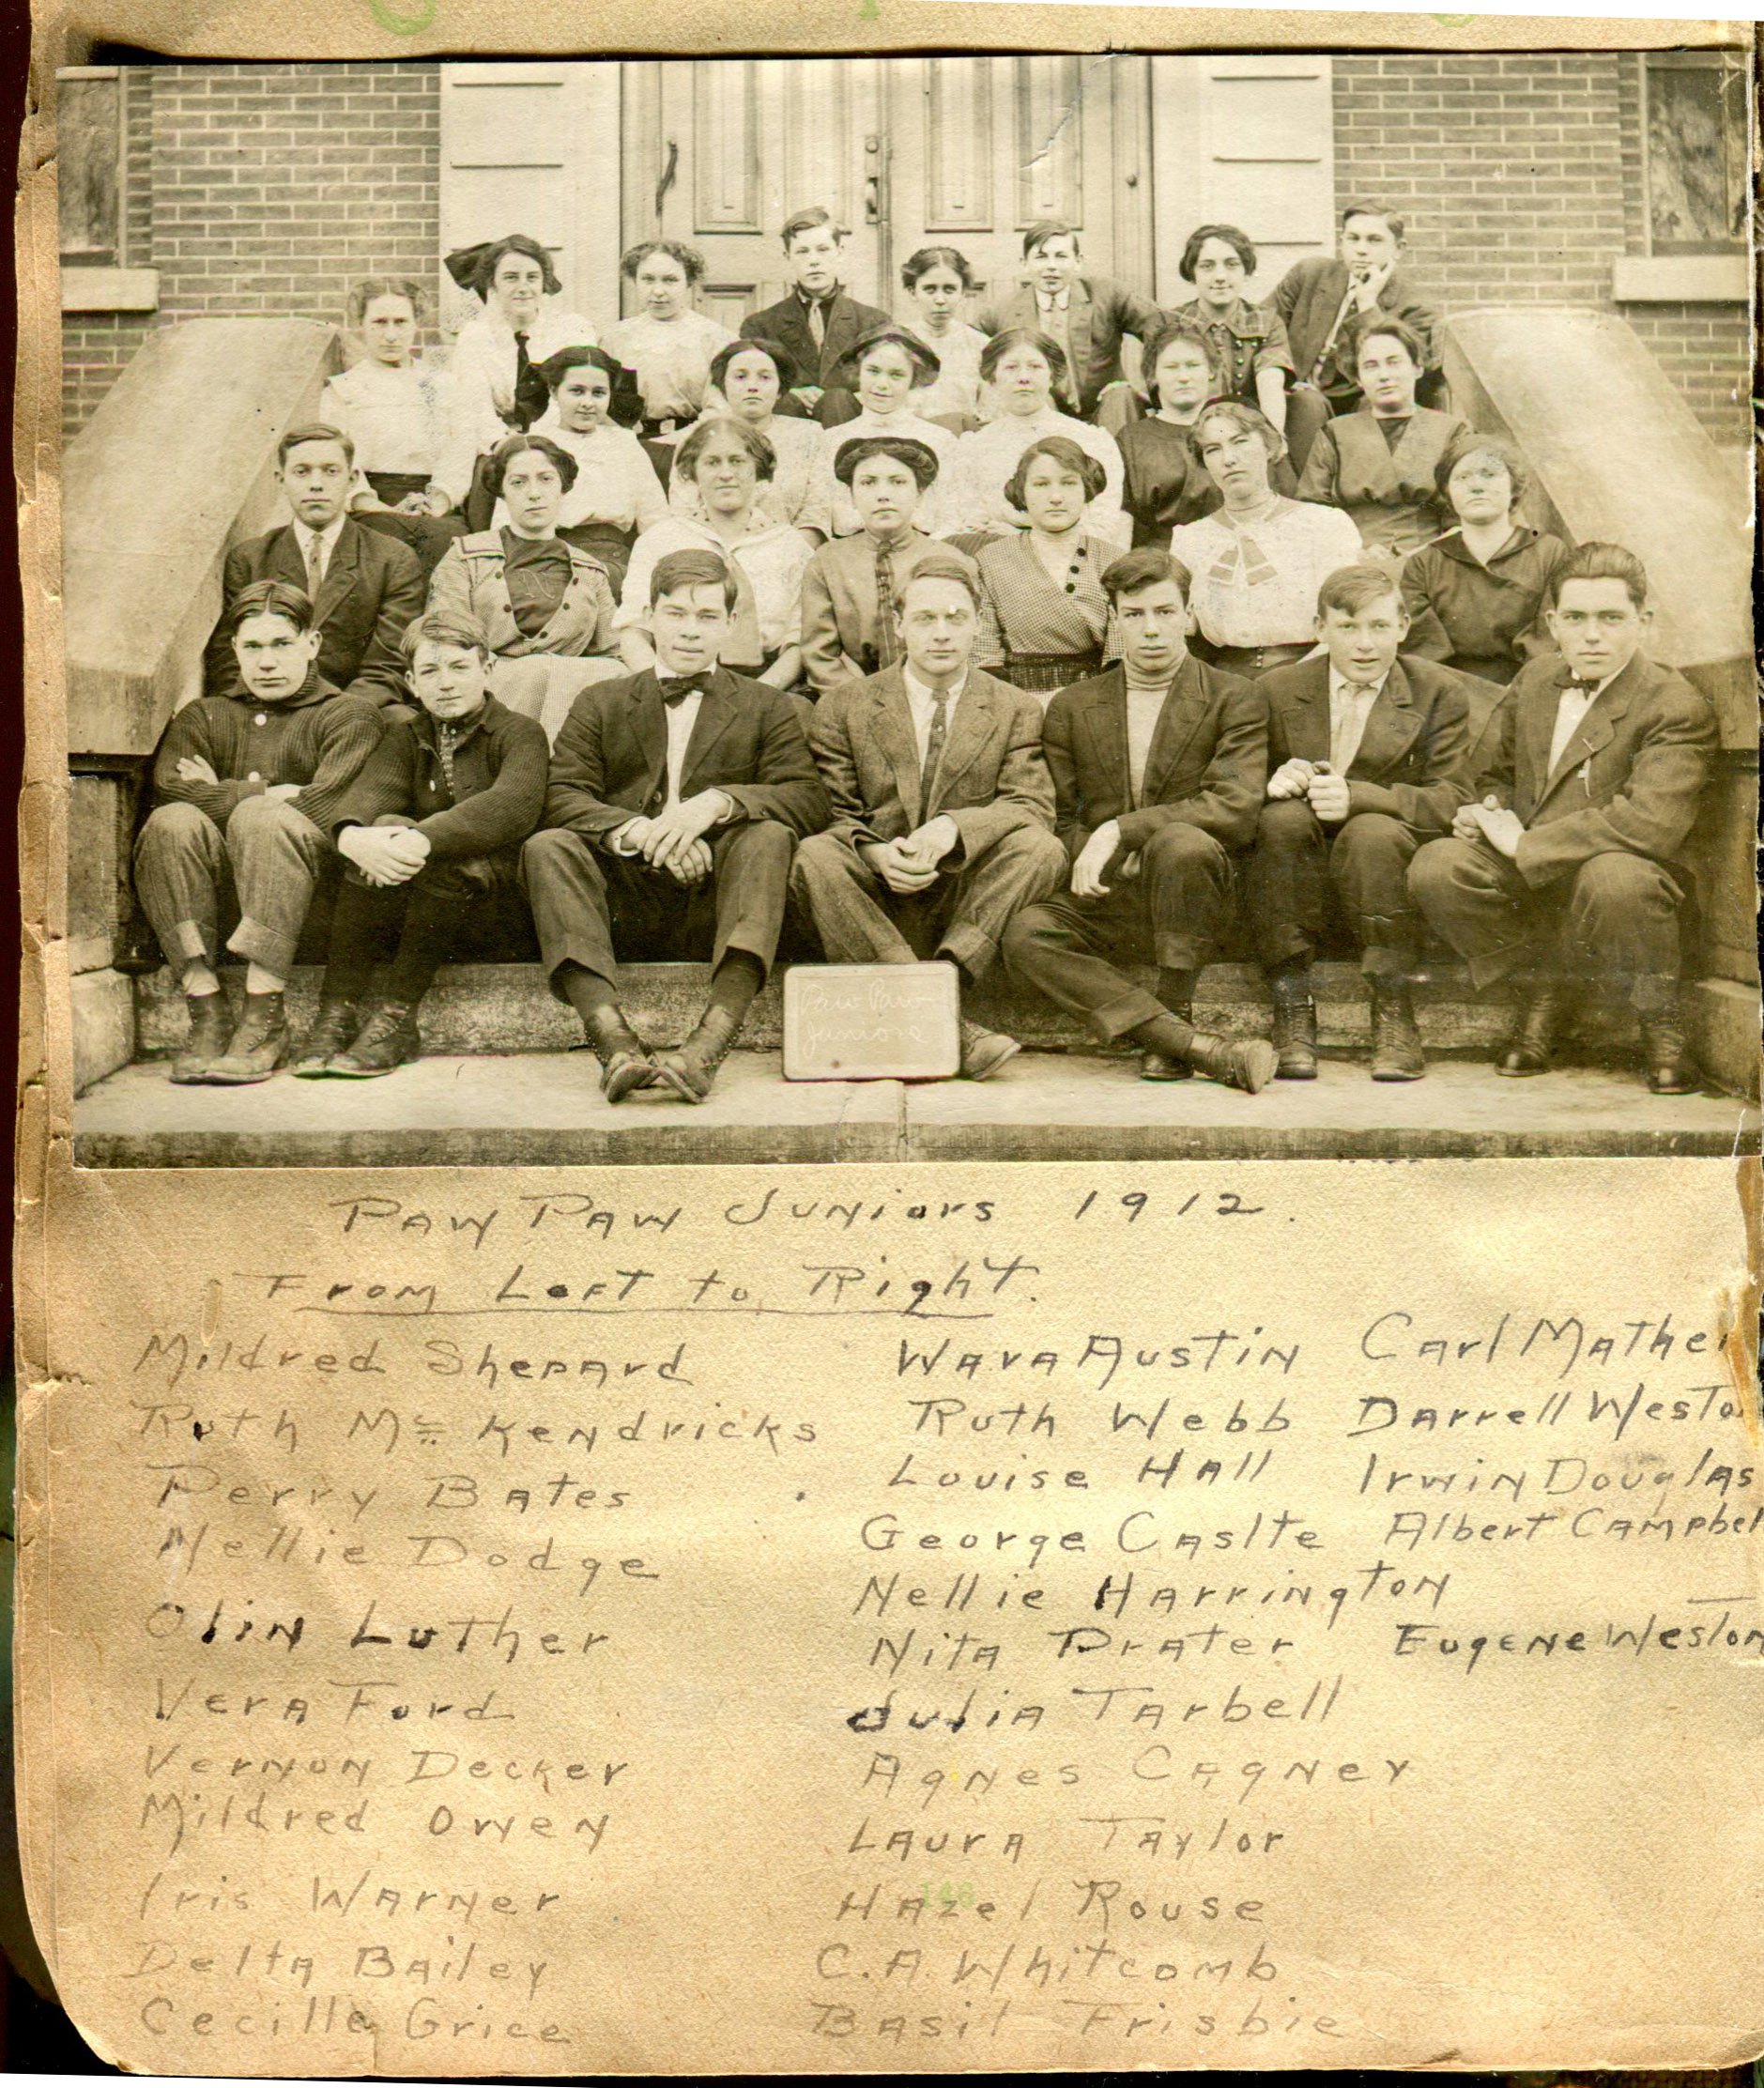 Paw Paw
Juniors
Paw Paw Juniors 1912.
From Left to Right.
Mildred Shepard
Ruth Mc Kendricks
Perry Bates
Nellie Dodge
Olin Luther
Vera Ford
Vernon Decker
Mildred Owen
Iris Warner
Delta Bailey
Cecille Grice
Wava Austin
Ruth Webb
Louise Hall
George Caslte
Nellie Harrington
Nita Prater
Julia Tarbell
Agnes Cagney
Laura Taylor
Hazel Rouse
C.A. Whitcomb
Basil Frisbie
Carl Mather
Darrell Weston
Irwin Douglas
Albert Campbell
Eugene Weston